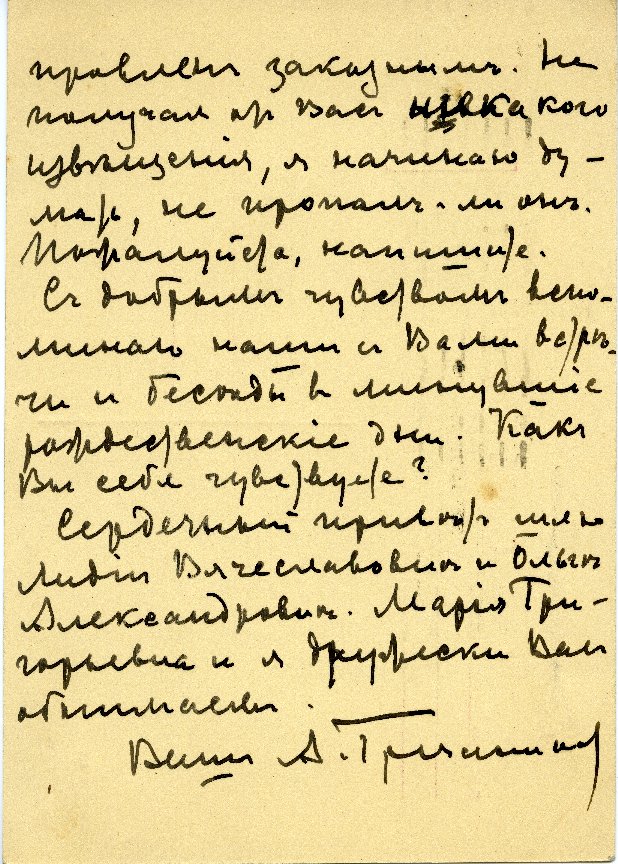 правленъ заказнымъ. Не
получая от Вас никакого
извѣщенія, я начинаю ду-
мать, не пропалъ-ли онъ.
Пожалуйста, напишите.
Съ добрым чувством вспо-
минаю наши с Вами встрѣ-
чи и бесѣды в минувшіе
рождественскіе дни. Какъ
Вы себя чувствуете?
Сердечный привѣт шлю
Лидіи Вячеславовнѣ и Ольгѣ
Александровнѣ. Марія Гри-
горьевна и я дружески Вас
обнимаем.
Ваш А. Гречанинов